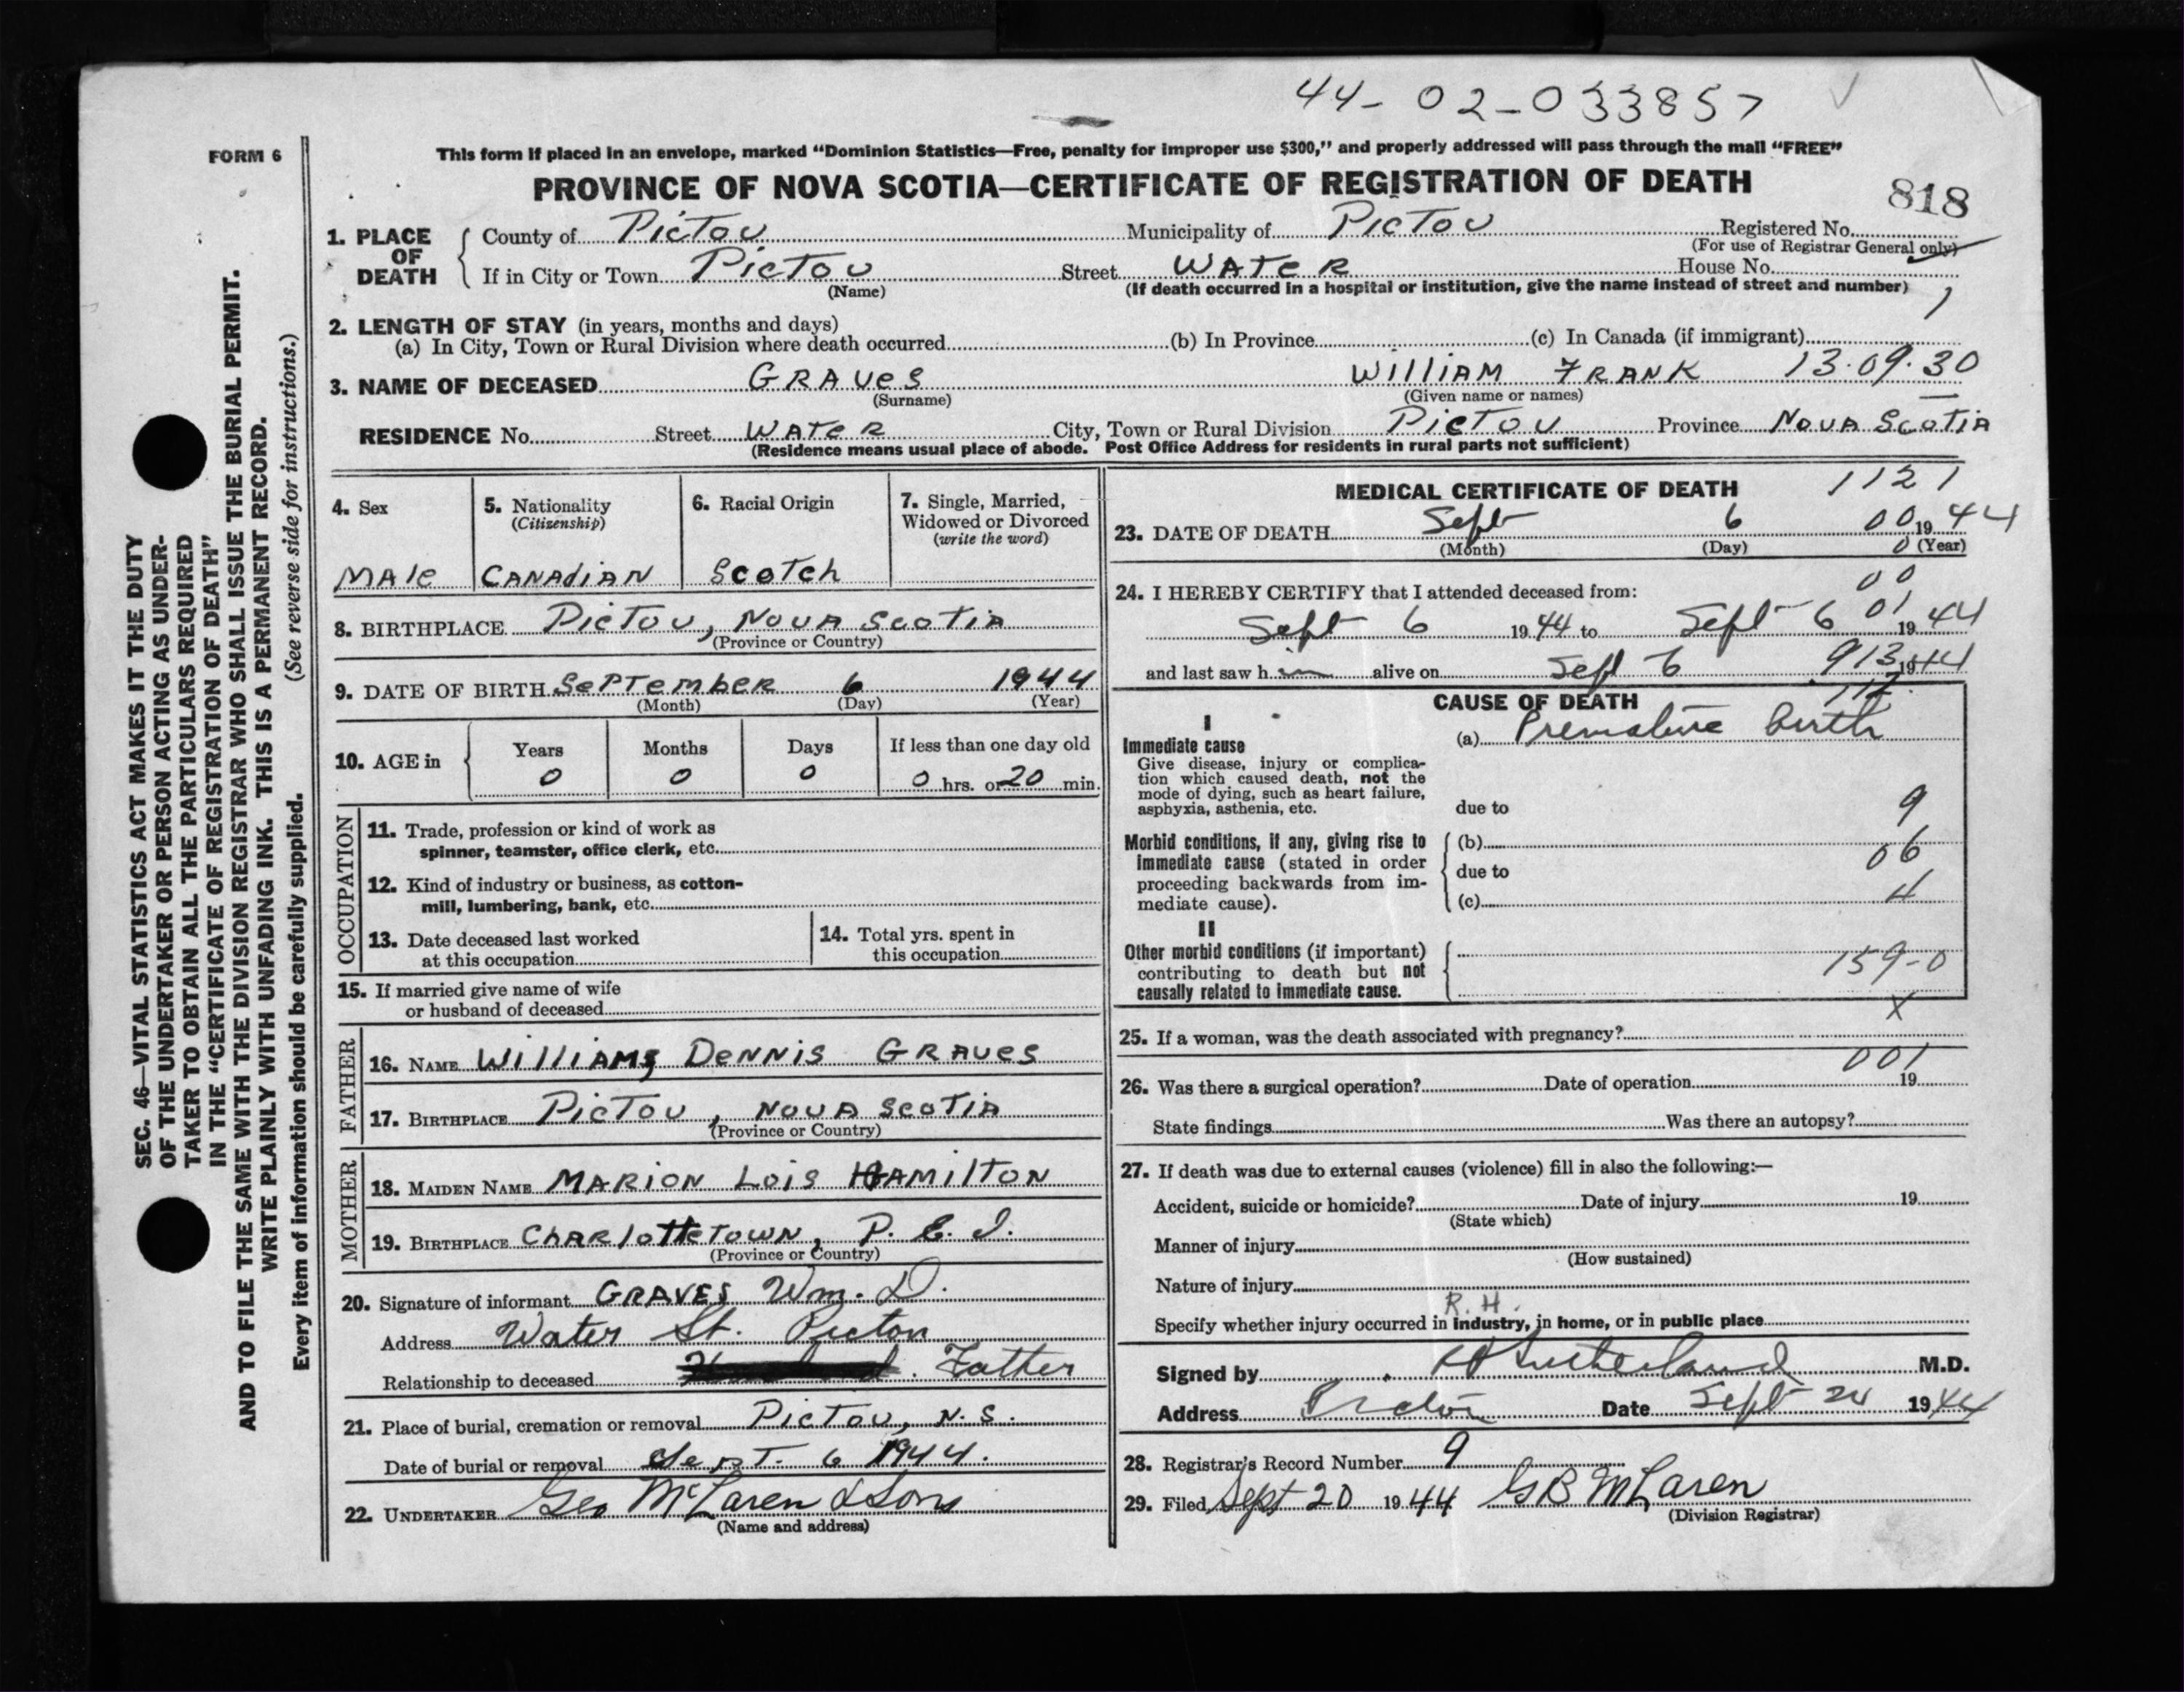 44-02-033857
FORM 6
This form if placed in an envelope, marked “Dominion Statistics—Free, penalty for improper use $300,” and properly addressed will pass through the mail “FREE”
PROVINCE OF NOVA SCOTIA—CERTIFICATE OF REGISTRATION OF DEATH
818
1. PLACE OF DEATH
County of Pictou Municipality of Pictou Registered No.
(For use of Registrar General only)
If in City or Town Pictou Street Water House No.
(Name) (If death occurred in a hospital or institution, give the name instead of street and number)
1
2. LENGTH OF STAY (in years, months and days)
(a) In City, Town or Rural Division where death occurred (b) In Province (c) In Canada (if immigrant)
3. NAME OF DECEASED GRAVES WILLIAM FRANK 13.09.30
(Surname) (Given name or names)
RESIDENCE No. Street Water City, Town or Rural Division Pictou Province Nova Scotia
(Residence means usual place of abode. Post Office Address for residents in rural parts not sufficient)
4. Sex
Male
5. Nationality
(Citizenship)
Canadian
6. Racial Origin
Scotch
7. Single, Married,
Widowed or Divorced
(write the word)
8. BIRTHPLACE Pictou, Nova Scotia
(Province or Country)
9. DATE OF BIRTH September 6 1944
(Month) (Day) (Year)
10. AGE in
Years Months Days If less than one day old
0 0 0 0 hrs. or 20 min.
OCCUPATION
11. Trade, profession or kind of work as
spinner, teamster, office clerk, etc.
12. Kind of industry or business, as cotton-
mill, lumbering, bank, etc.
13. Date deceased last worked
at this occupation
14. Total yrs. spent in
this occupation
15. If married give name of wife
or husband of deceased
FATHER
16. NAME Williams Dennis Graves
17. BIRTHPLACE Pictou, Nova Scotia
(Province or Country)
MOTHER
18. MAIDEN NAME Marion Lois Hamilton
19. BIRTHPLACE Charlottetown, P.E.I.
(Province or Country)
20. Signature of informant GRAVES Wm. D.
Address Water St. Pictou
Relationship to deceased Father
21. Place of burial, cremation or removal Pictou, N.S.
Date of burial or removal Sept. 6 1944.
22. UNDERTAKER Geo McLaren & Sons
(Name and address)
MEDICAL CERTIFICATE OF DEATH
1121
23. DATE OF DEATH Sept 6 00 1944
(Month) (Day) 0 (Year)
00
24. I HEREBY CERTIFY that I attended deceased from:
01
Sept 6 1944 to Sept 6 1944
and last saw him alive on Sept 6 913 1944
CAUSE OF DEATH
I
Immediate cause
Give disease, injury or complica-
tion which caused death, not the
mode of dying, such as heart failure,
asphyxia, asthenia, etc.
(a) Premature birth
due to
9
Morbid conditions, if any, giving rise to
immediate cause (stated in order
proceeding backwards from im-
mediate cause).
(b)
06
due to
(c) 4
II
Other morbid conditions (if important)
contributing to death but not
causally related to immediate cause.
159-0
X
25. If a woman, was the death associated with pregnancy?
001
26. Was there a surgical operation? Date of operation 19
State findings Was there an autopsy?
27. If death was due to external causes (violence) fill in also the following:—
Accident, suicide or homicide? Date of injury 19
(State which)
Manner of injury
(How sustained)
Nature of injury
R. H.
Specify whether injury occurred in industry, in home, or in public place
Signed by Sutherland M.D.
Address Pictou Date Sept 24 1944
28. Registrar's Record Number 9
29. Filed Sept 20 1944 GB McLaren
(Division Registrar)
SEC. 46—VITAL STATISTICS ACT MAKES IT THE DUTY
OF THE UNDERTAKER OR PERSON ACTING AS UNDER-
TAKER TO OBTAIN ALL THE PARTICULARS REQUIRED
IN THE “CERTIFICATE OF REGISTRATION OF DEATH”
AND TO FILE THE SAME WITH THE DIVISION REGISTRAR WHO SHALL ISSUE THE BURIAL PERMIT.
WRITE PLAINLY WITH UNFADING INK. THIS IS A PERMANENT RECORD.
Every item of information should be carefully supplied. (See reverse side for instructions.)